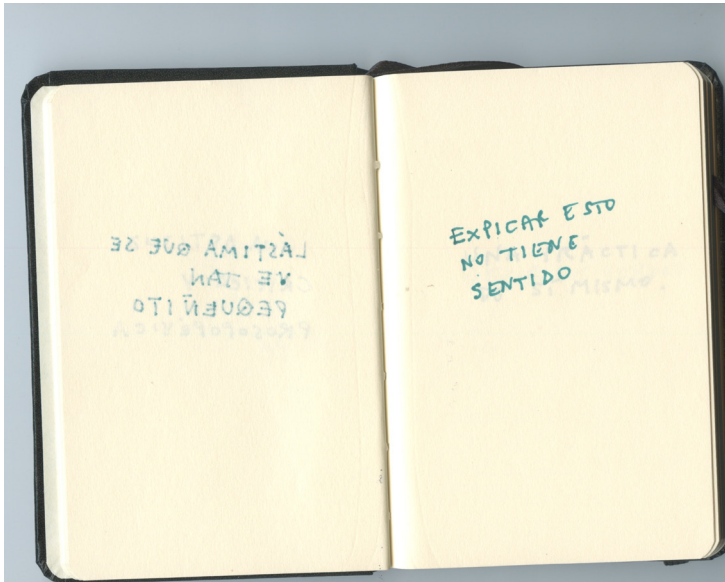 LÁSTIMA QUE SE
VE TAN
PEQUEÑITO
EXPICAR ESTO
NO TIENE
SENTIDO